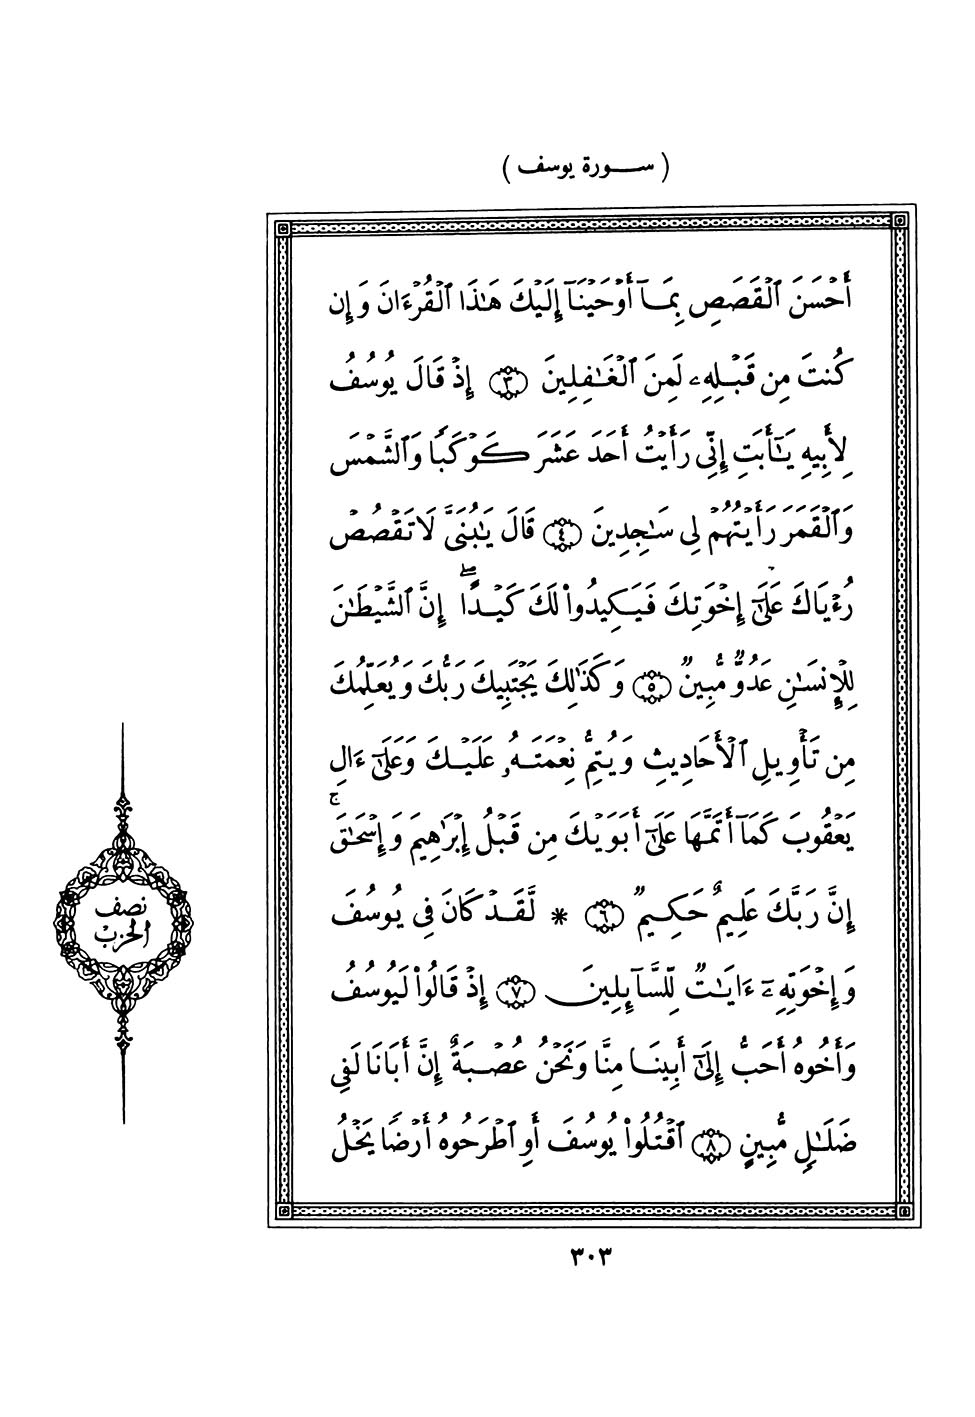 ( ســورة يوسف )
أَحْسَنَ ٱلْقَصَصِ بِمَآ أَوْحَيْنَآ إِلَيْكَ هَـٰذَا ٱلْقُرْءَانَ وَإِن
كُنتَ مِن قَبْلِهِۦ لَمِنَ ٱلْغَـٰفِلِينَ ﴿٣﴾ إِذْ قَالَ يُوسُفُ
لِأَبِيهِ يَـٰٓأَبَتِ إِنِّى رَأَيْتُ أَحَدَ عَشَرَ كَوْكَبًا وَٱلشَّمْسَ
وَٱلْقَمَرَ رَأَيْتُهُمْ لِى سَـٰجِدِينَ ﴿٤﴾ قَالَ يَـٰبُنَىَّ لَا تَقْصُصْ
رُءْيَاكَ عَلَىٰٓ إِخْوَتِكَ فَيَكِيدُوا۟ لَكَ كَيْدًا ۖ إِنَّ ٱلشَّيْطَـٰنَ
لِلْإِنسَـٰنِ عَدُوٌّ مُّبِينٌ ﴿٥﴾ وَكَذَٰلِكَ يَجْتَبِيكَ رَبُّكَ وَيُعَلِّمُكَ
مِن تَأْوِيلِ ٱلْأَحَادِيثِ وَيُتِمُّ نِعْمَتَهُۥ عَلَيْكَ وَعَلَىٰٓ ءَالِ
يَعْقُوبَ كَمَآ أَتَمَّهَا عَلَىٰٓ أَبَوَيْكَ مِن قَبْلُ إِبْرَٰهِيمَ وَإِسْحَـٰقَ ۚ
إِنَّ رَبَّكَ عَلِيمٌ حَكِيمٌ ﴿٦﴾ * لَّقَدْ كَانَ فِى يُوسُفَ
وَإِخْوَتِهِۦٓ ءَايَـٰتٌ لِّلسَّآئِلِينَ ﴿٧﴾ إِذْ قَالُوا۟ لَيُوسُفُ
وَأَخُوهُ أَحَبُّ إِلَىٰٓ أَبِينَا مِنَّا وَنَحْنُ عُصْبَةٌ إِنَّ أَبَانَا لَفِى
ضَلَـٰلٍ مُّبِينٍ ﴿٨﴾ ٱقْتُلُوا۟ يُوسُفَ أَوِ ٱطْرَحُوهُ أَرْضًا يَخْلُ
نصف
الحزب
٣٠٣